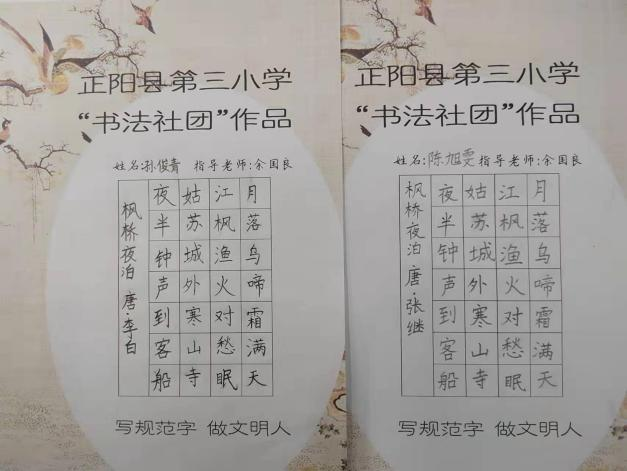 正阳县第三小学
“书法社团”作品
姓名:孙俊青 指导老师:余国良
月落乌啼霜满天
江枫渔火对愁眠
姑苏城外寒山寺
夜半钟声到客船
枫桥夜泊 唐·李白
写规范字 做文明人
正阳县第三小学
“书法社团”作品
姓名:陈旭雯 指导老师:余国良
月落乌啼霜满天
江枫渔火对愁眠
姑苏城外寒山寺
夜半钟声到客船
枫桥夜泊 唐·张继
写规范字 做文明人